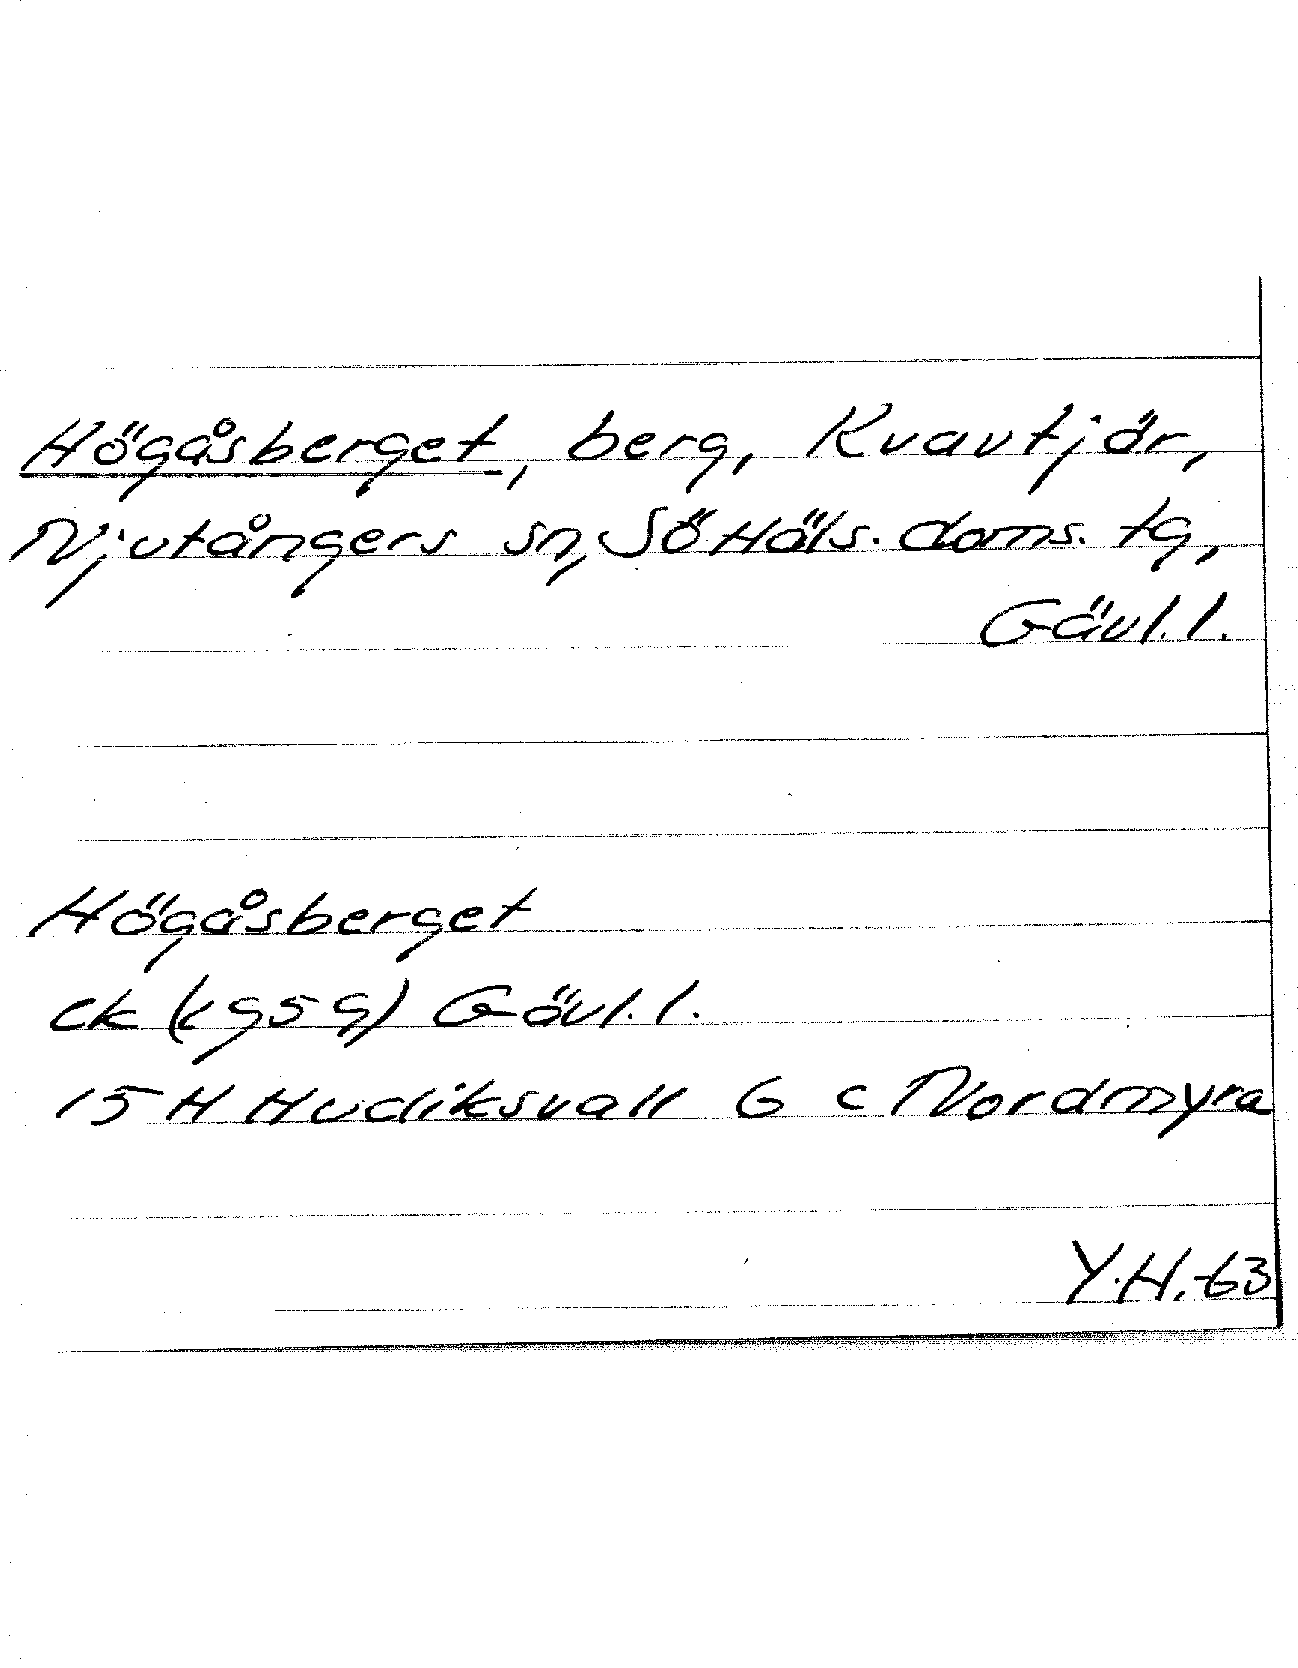 Högåsberget, berg, Kvavtjär,
Njutångers sn, Sö Häls. doms. tg,
Gävl. l.
Högåsberget
ek (1959) Gävl. l.
15 H Hudiksvall 6 c Nordmyra
Y.H.-63